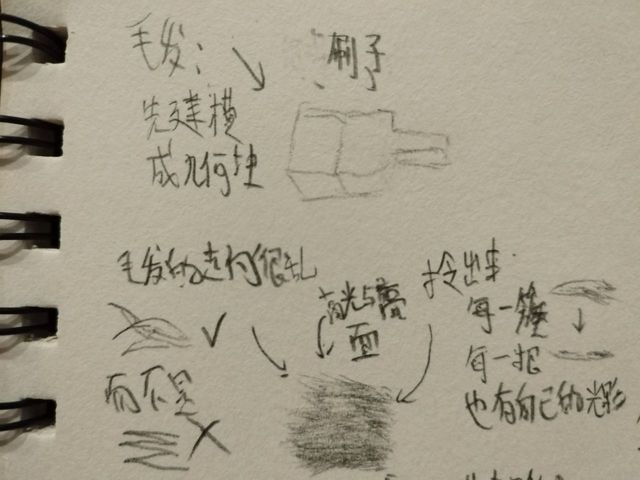 毛发：
刷子
先建模
成几何块
毛发的走向很乱
高光与亮
面
拎出来
每一簇
每一根
也有自己的光影
而不是